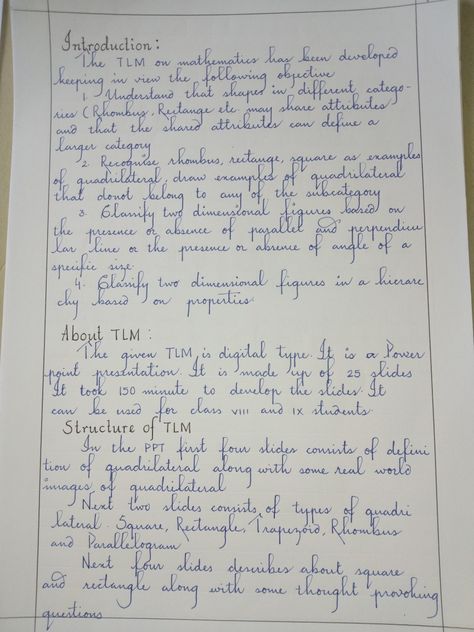 Introduction :
The TLM on mathematics has been developed
keeping in view the following objective
1. Understand that shapes in different catego-
ries (Rhombus, Rectange etc may share attributes
and that the shared attributes can define a
larger category
2. Recognise rhombus, rectange, square as examples
of quadrilateral, draw examples of quadrilateral
that donot belong to any of the subcategory
3. Classify two dimensional figures based on
the presence or absence of parallel and perpendicu
lar line or the presence or absence of angle of a
specific size.
4. Classify two dimensional figures in a hierar
chy based on properties.
About TLM :
The given TLM is digital type. It is a Power
point presentation. It is made up of 25 slides
It took 150 minute to develop the slides. It
can be used for class VIII and IX students.
Structure of TLM
In the PPT first four slides consists of defini
tion of quadrilateral along with some real world
images of quadrilateral
Next two slides consists of types of quadri
lateral. Square, Rectangle, Trapezoid, Rhombus
and Parallelogram
Next four slides describes about square
and rectangle along with some thought provoking
questions